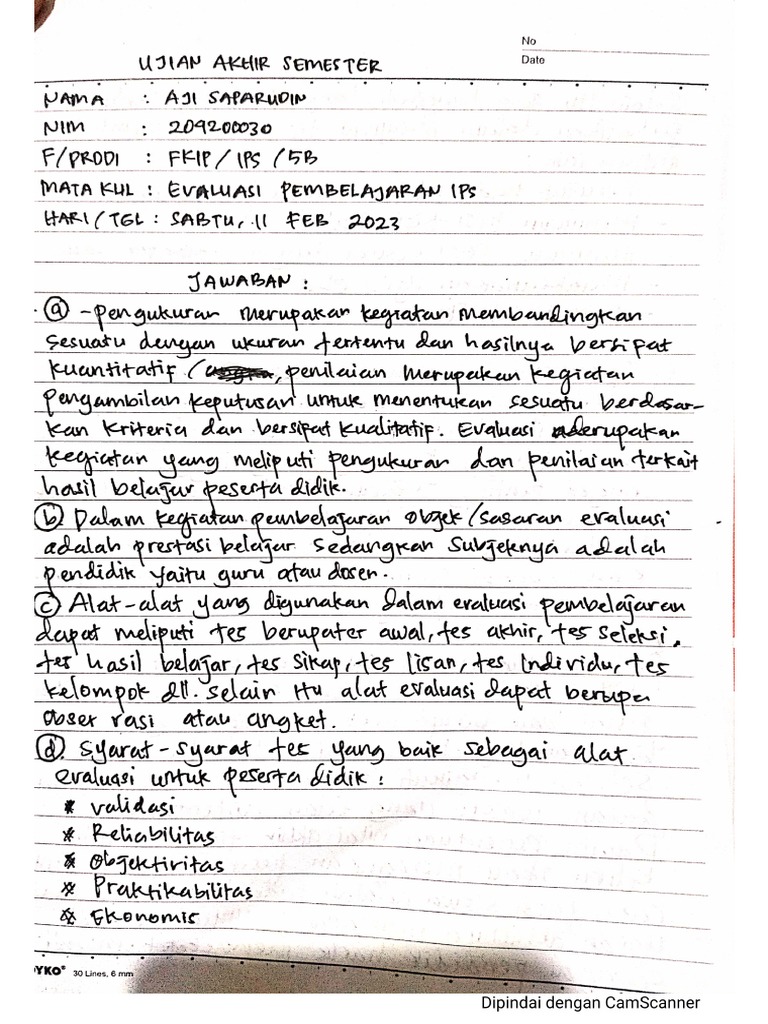 No
Date
UJIAN AKHIR SEMESTER
NAMA : AJI SAPARUDIN
NIM : 209200030
F/PRODI : FKIP / IPS / 5B
MATA KUL : EVALUASI PEMBELAJARAN IPS
HARI / TGL : SABTU, 11 FEB 2023
JAWABAN :
a - pengukuran merupakan kegiatan membandingkan
sesuatu dengan ukuran tertentu dan hasilnya bersipat
kuantitatif (, penilaian merupakan kegiatan
pengambilan keputusan untuk menentukan sesuatu berdasar-
kan kriteria dan bersipat kualitatif. Evaluasi merupakan
kegiatan yang meliputi pengukuran dan penilaian terkait
hasil belajar peserta didik.
b Dalam kegiatan pembelajaran objek / sasaran evaluasi
adalah prestasi belajar sedangkan subjeknya adalah
pendidik yaitu guru atau dosen.
c Alat-alat yang digunakan dalam evaluasi pembelajaran
dapat meliputi tes awal, tes akhir, tes seleksi,
tes hasil belajar, tes sikap, tes lisan, tes individu, tes
kelompok dll. selain itu alat evaluasi dapat berupa
obser rasi atau angket.
d. Syarat-syarat tes yang baik sebagai alat
evaluasi untuk peserta didik :
* validasi
* Reliabilitas
* Objektivitas
* Praktikabilitas
* Ekonomis
YKO® 30 Lines, 6 mm
Dipindai dengan CamScanner